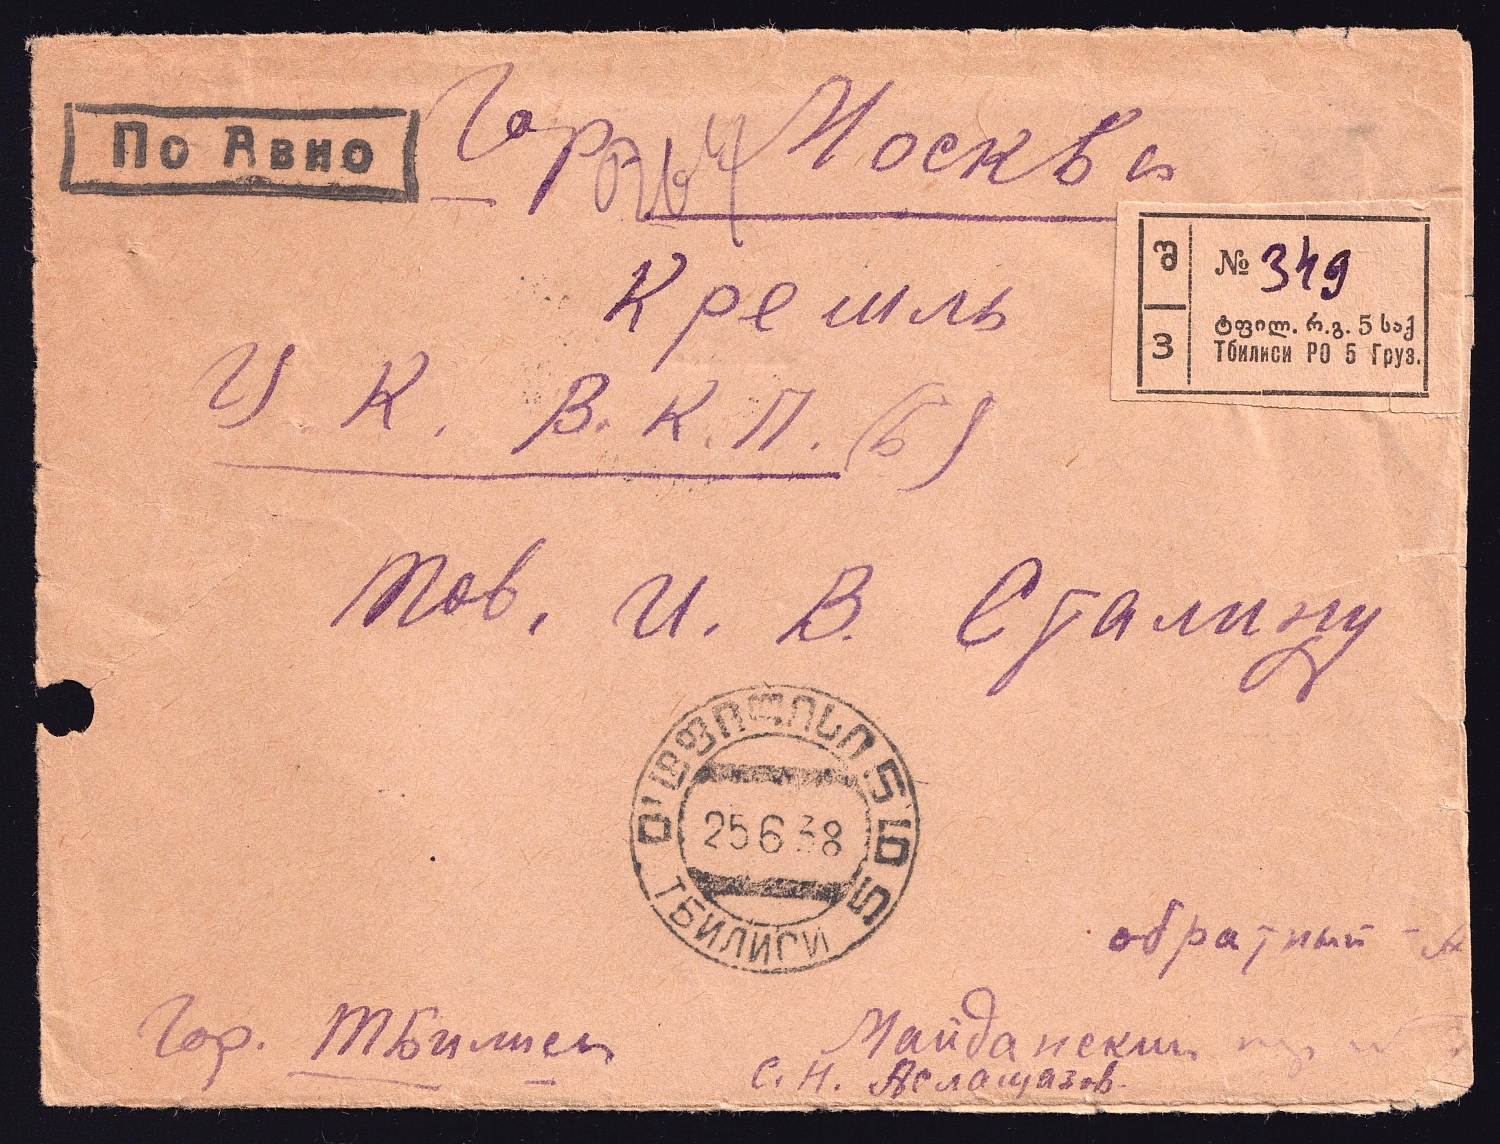 По Авио
Гор. Москва
შ № 349
ტფილ. რ.გ. 5 საქ
З Тбилиси РО 5 Груз.
Кремль
Ц К. В. К. П. (Б)
Тов. И. В. Сталину
ТБИЛИСИ
25 6 38
обратный
Гор. Тбилиси
Майданский
С. Н.